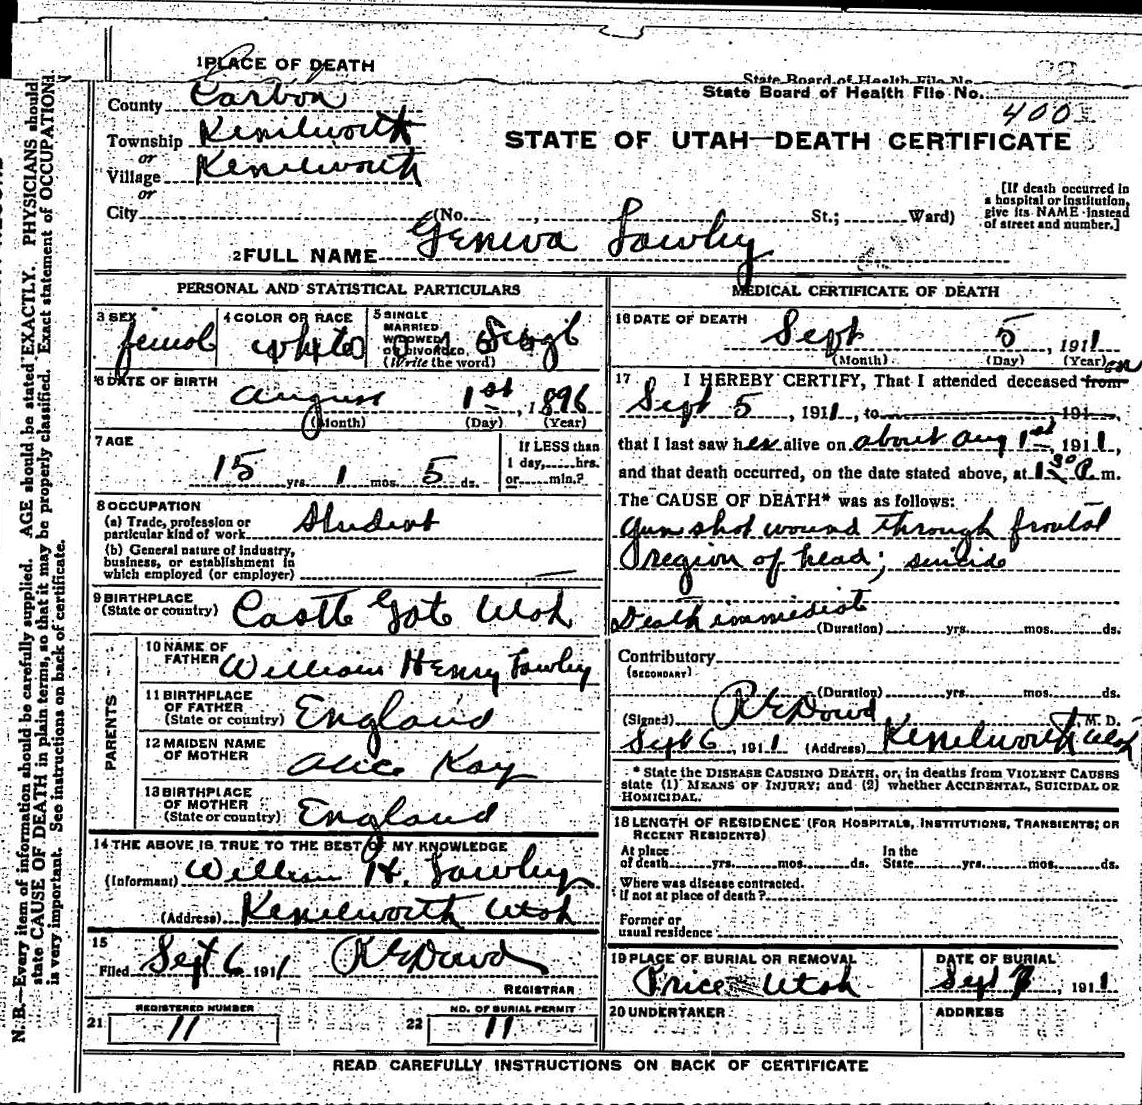 1 PLACE OF DEATH
State Board of Health File No.
County Carbon
State Board of Health File No. 400
Township Kenilworth
or
Village Kenilworth
or
STATE OF UTAH—DEATH CERTIFICATE
City (No. , St.; Ward)
[If death occurred in
a hospital or institution,
give its NAME instead
of street and number.]
2 FULL NAME Geneva
PERSONAL AND STATISTICAL PARTICULARS
3 SEX
4 COLOR OR RACE white
5 SINGLE
MARRIED
WIDOWED
OR DIVORCED,
(Write the word)
6 DATE OF BIRTH
August 1st, 1896
(Month) (Day) (Year)
7 AGE
15 yrs. 1 mos. 5 ds.
If LESS than
1 day, hrs.
or min.?
8 OCCUPATION
(a) Trade, profession or
particular kind of work Student
(b) General nature of industry,
business, or establishment in
which employed (or employer)
9 BIRTHPLACE
(State or country) Castle Gate Utah
PARENTS
10 NAME OF
FATHER William Henry
11 BIRTHPLACE
OF FATHER
(State or country) England
12 MAIDEN NAME
OF MOTHER Alice Kay
13 BIRTHPLACE
OF MOTHER
(State or country) England
14 THE ABOVE IS TRUE TO THE BEST OF MY KNOWLEDGE
(Informant) William H.
(Address) Kenilworth Utah
15
Filed Sept 6 1911
REGISTRAR
REGISTERED NUMBER
21 11
NO. OF BURIAL PERMIT
22 11
MEDICAL CERTIFICATE OF DEATH
16 DATE OF DEATH
Sept 5, 1911
(Month) (Day) (Year)
17 I HEREBY CERTIFY, That I attended deceased from on
Sept 5, 1911, to 191
that I last saw her alive on about Aug 1st, 1911,
and that death occurred, on the date stated above, at 1 30 P m.
The CAUSE OF DEATH* was as follows:
Gun shot wound through frontal
region of head; suicide
Death immediate
(Duration) yrs. mos. ds.
Contributory
(SECONDARY)
(Duration) yrs. mos. ds.
(Signed) M. D.
Sept 6, 1911 (Address) Kenilworth Utah
* State the DISEASE CAUSING DEATH, or, in deaths from VIOLENT CAUSES
state (1) MEANS OF INJURY; and (2) whether ACCIDENTAL, SUICIDAL OR
HOMICIDAL.
18 LENGTH OF RESIDENCE (FOR HOSPITALS, INSTITUTIONS, TRANSIENTS; OR
RECENT RESIDENTS)
At place In the
of death yrs. mos. ds. State yrs. mos. ds.
Where was disease contracted.
if not at place of death?
Former or
usual residence
19 PLACE OF BURIAL OR REMOVAL
Price Utah
DATE OF BURIAL
Sept 7, 1911
20 UNDERTAKER
ADDRESS
READ CAREFULLY INSTRUCTIONS ON BACK OF CERTIFICATE
N. B.—Every item of information should be carefully supplied. AGE should be stated EXACTLY. PHYSICIANS should
state CAUSE OF DEATH in plain terms, so that it may be properly classified. Exact statement of OCCUPATION
is very important. See instructions on back of certificate.